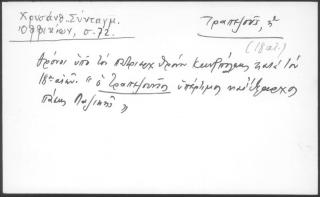 Χρυσάνθ. Σύνταγμ.
Ὀφφικίων, σ. 72.
Τραπεζοῦς, ἡ
(18 αἰ.)
θρόνοι ὑπὸ τὸν πατριαρχ. θρόνον Κωνσ/πόλεως κατὰ τὸν
18ον αἰῶν. "ὁ Τραπεζοῦντος ὑπέρτιμος καὶ ἔξαρχος
πάσης Λαζικῆς"